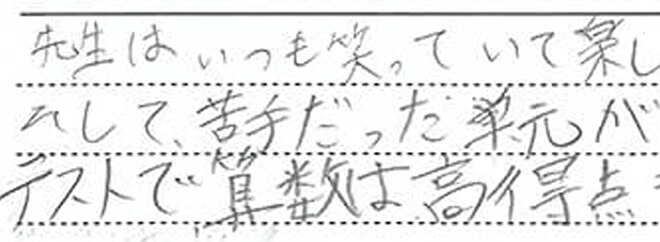 先生はいつも笑っていて楽し
そして、苦手だった単元が
テストで算数は高得点